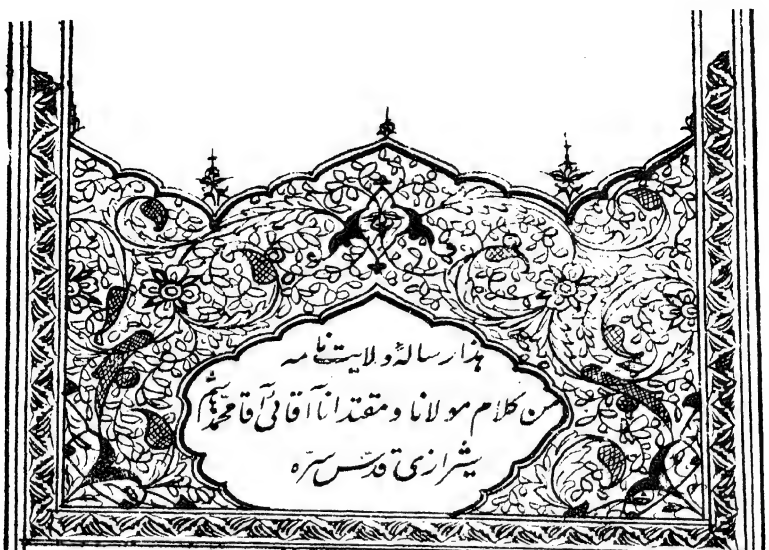 هذا رسالۀ ولایت نامه
من کلام مولانا و مقتدانا آقائی آقا محمد هاشم
شیرازی قدّس سرّه